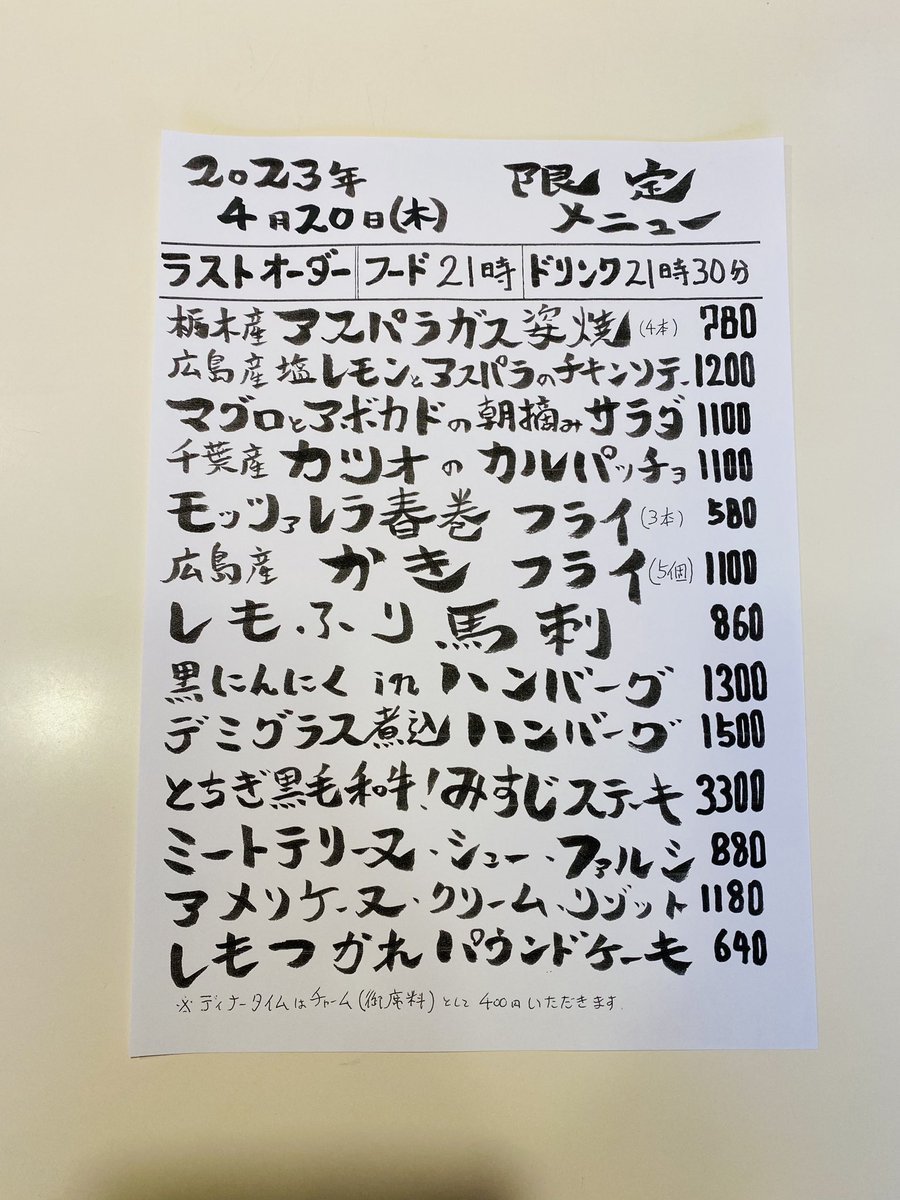 2023年 限定
4月20日(木) メニュー
ラストオーダー フード21時 ドリンク21時30分
栃木産 アスパラガス姿焼(4本) 780
広島産 塩レモンとアスパラのチキンソテー 1200
マグロとアボカドの朝摘みサラダ 1100
千葉産 カツオのカルパッチョ 1100
モッツァレラ春巻フライ(3本) 580
広島産 かきフライ(5個) 1100
しもふり馬刺 860
黒にんにくinハンバーグ 1300
デミグラス煮込ハンバーグ 1500
とちぎ黒毛和牛!みすじステーキ 3300
ミートテリーヌ・シュー・ファルシ 880
アメリケーヌ・クリーム・リゾット 1180
しもつかれパウンドケーキ 640
※ディナータイムはチャーム(御席料)として400円いただきます.